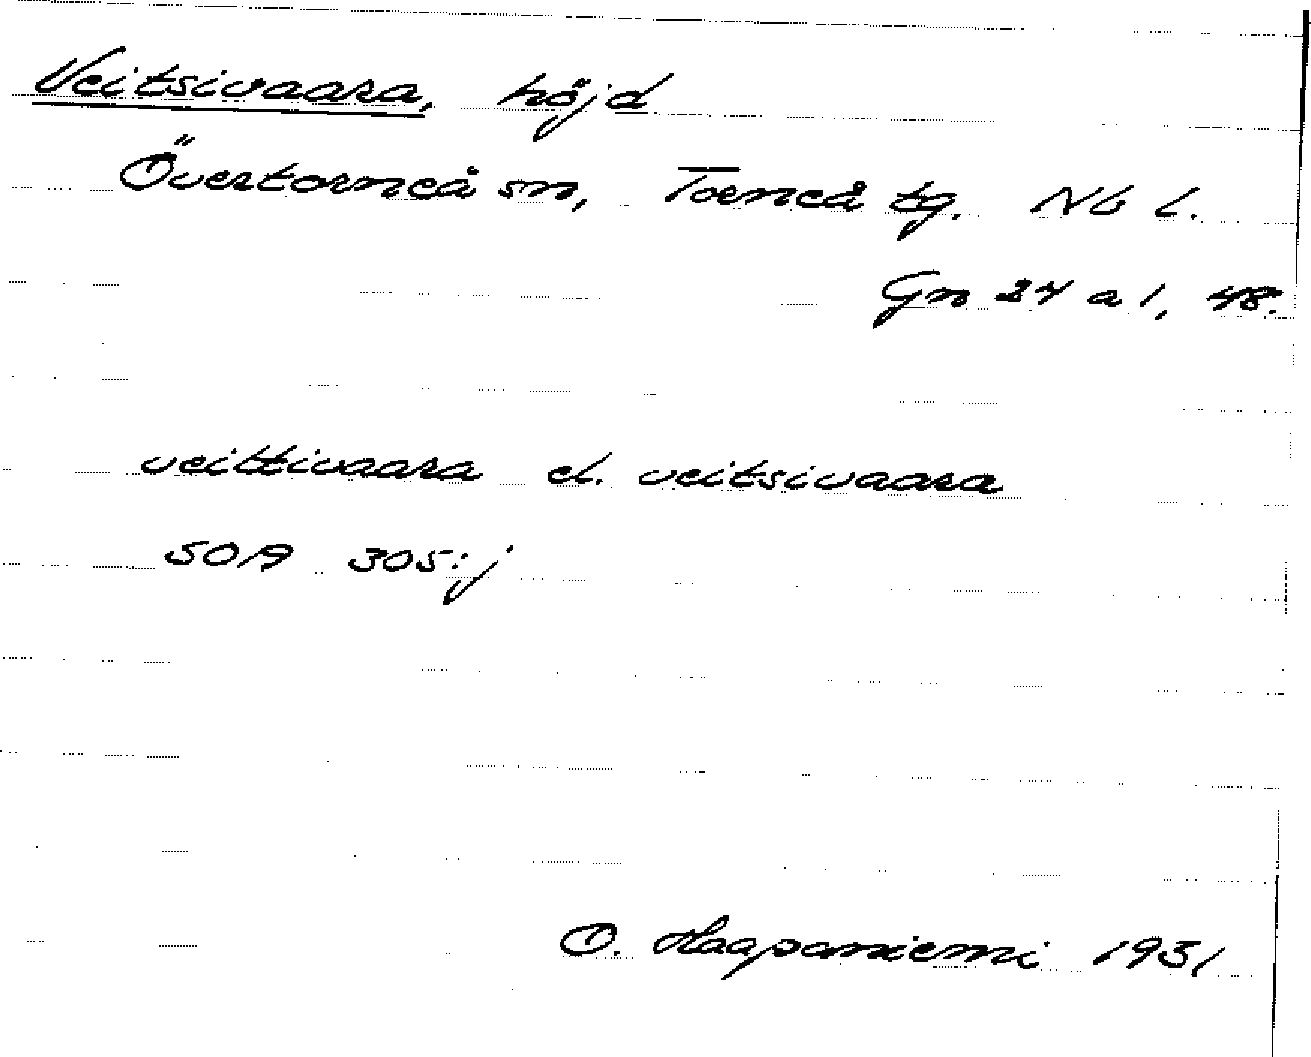 Veitsivaara, höjd
Övertorneå sn, Torneå tg. Nb l.
Gn 24 a 1, 48.
veittivaara el. veitsivaara
SOA 305:j
O. Haapaniemi 1931